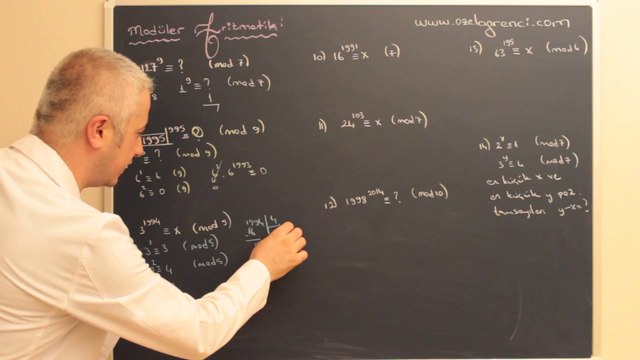 Modüler Aritmetik:
www.ozelogrenci.com
127⁹ ≡ ? (mod 7)
1⁹ ≡ ? (mod 7)
1
1995¹⁹⁹⁵ ≡ ? (mod 9)
≡ ? (mod 9)
6¹ ≡ 6 (9)
6² ≡ 0 (9)
6¹⁹⁹³ ≡ 0
3¹⁹⁹⁴ ≡ x (mod 5)
3¹ ≡ 3 (mod 5)
3² ≡ 4 (mod 5)
1994 | 4
16
10) 16¹⁹⁹¹ ≡ x (7)
11) 24¹⁰³ ≡ x (mod 7)
12) 1998²⁰¹⁴ ≡ ? (mod 10)
13) 63¹⁹⁵ ≡ x (mod 6)
14) 2ˣ ≡ 1 (mod 7)
3ʸ ≡ 4 (mod 7)
en küçük x ve
en küçük y poz.
tamsayıları y-x=?